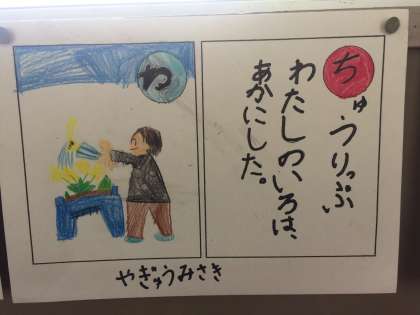 ちゅうりっぷ
わたしのいろは、
あかにした。
わ
やぎゅうみさき